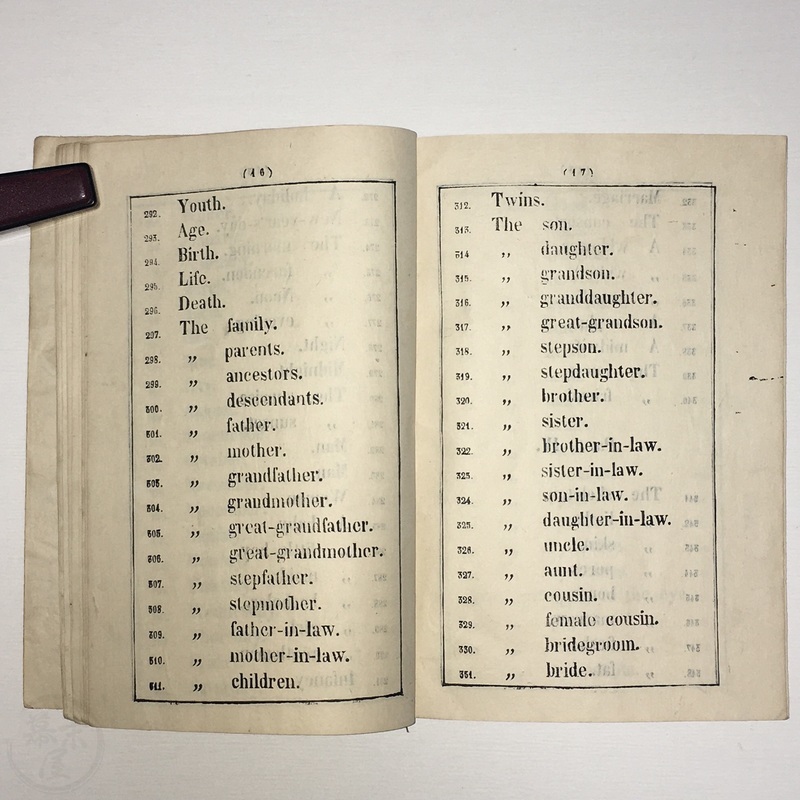 (16)
292. Youth.
293. Age.
294. Birth.
295. Life.
296. Death.
297. The family.
298. „ parents.
299. „ ancestors.
300. „ descendants.
301. „ father.
302. „ mother.
303. „ grandfather.
304. „ grandmother.
305. „ great-grandfather.
306. „ great-grandmother.
307. „ stepfather.
308. „ stepmother.
309. „ father-in-law.
310. „ mother-in-law.
311. „ children.
(17)
312. Twins.
313. The son.
314 „ daughter.
315. „ grandson.
316. „ granddaughter.
317. „ great-grandson.
318. „ stepson.
319. „ stepdaughter.
320. „ brother.
321. „ sister.
322. „ brother-in-law.
323. „ sister-in-law.
324. „ son-in-law.
325. „ daughter-in-law.
326. „ uncle.
327. „ aunt.
328. „ cousin.
329. „ female cousin.
330. „ bridegroom.
331. „ bride.